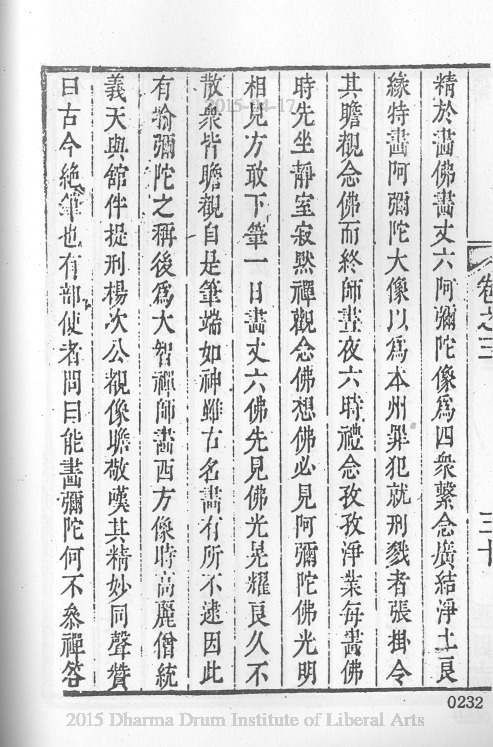 卷之三 三十
精於畵佛畵丈六阿彌陀像爲四衆繫念廣結淨土良
緣特畵阿彌陀大像以爲本州罪犯就刑戮者張掛令
其瞻視念佛而終師晝夜六時禮念孜孜淨業每畵佛
時先坐靜室寂然禪觀念佛想佛必見阿彌陀佛光明
相見方敢下筆一日畵丈六佛先見佛光晃耀良久不
散衆皆瞻覩自是筆端如神雖古名畵有所不逮因此
有喻彌陀之稱後爲大智禪師畵西方像時高麗僧統
義天與舘伴提刑楊次公覩像瞻敬嘆其精妙同聲贊
曰古今絶筆也有部使者問曰能畵彌陀何不參禪答
2015-04-17
0232
2015 Dharma Drum Institute of Liberal Arts